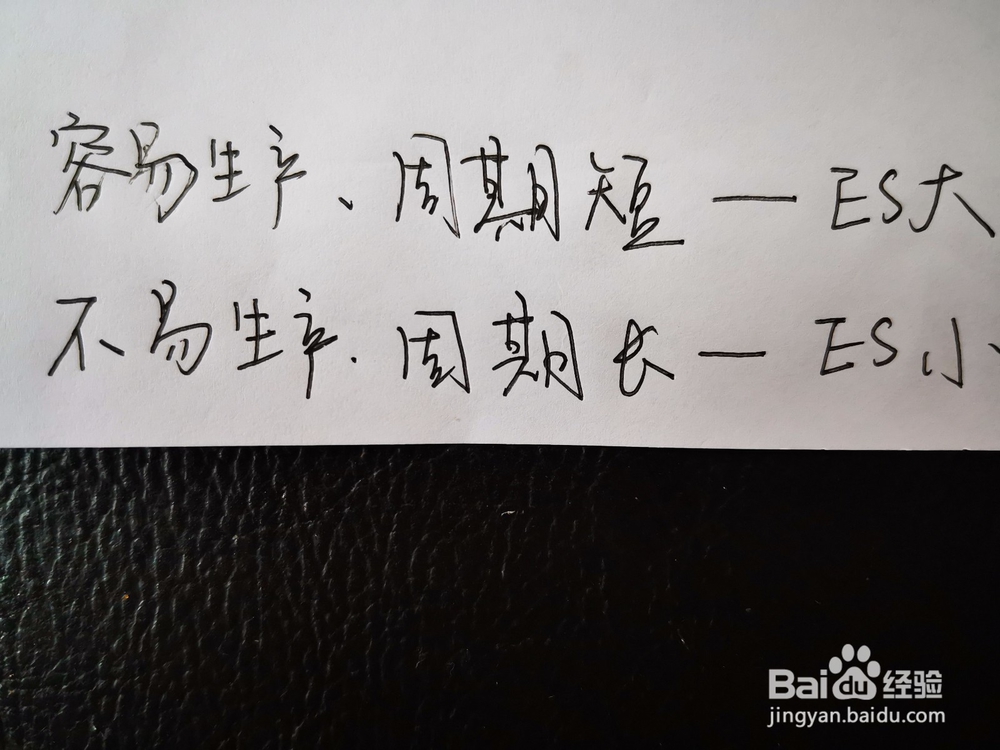 容易生产、周期短—ES大
不易生产.周期长—ES小、
Baidu经验
jingyan.baidu.com